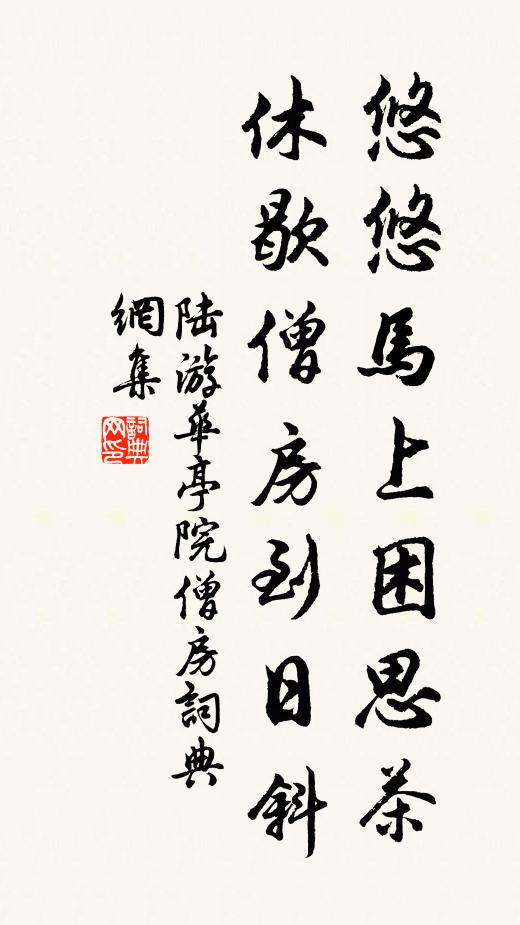 悠悠馬上困思茶
休歇僧房到日斜
陆游華亭院僧房詞典
網集
詞典
网印